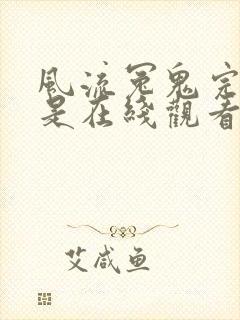 風流冤鬼完
是在綫觀看
艾咸鱼